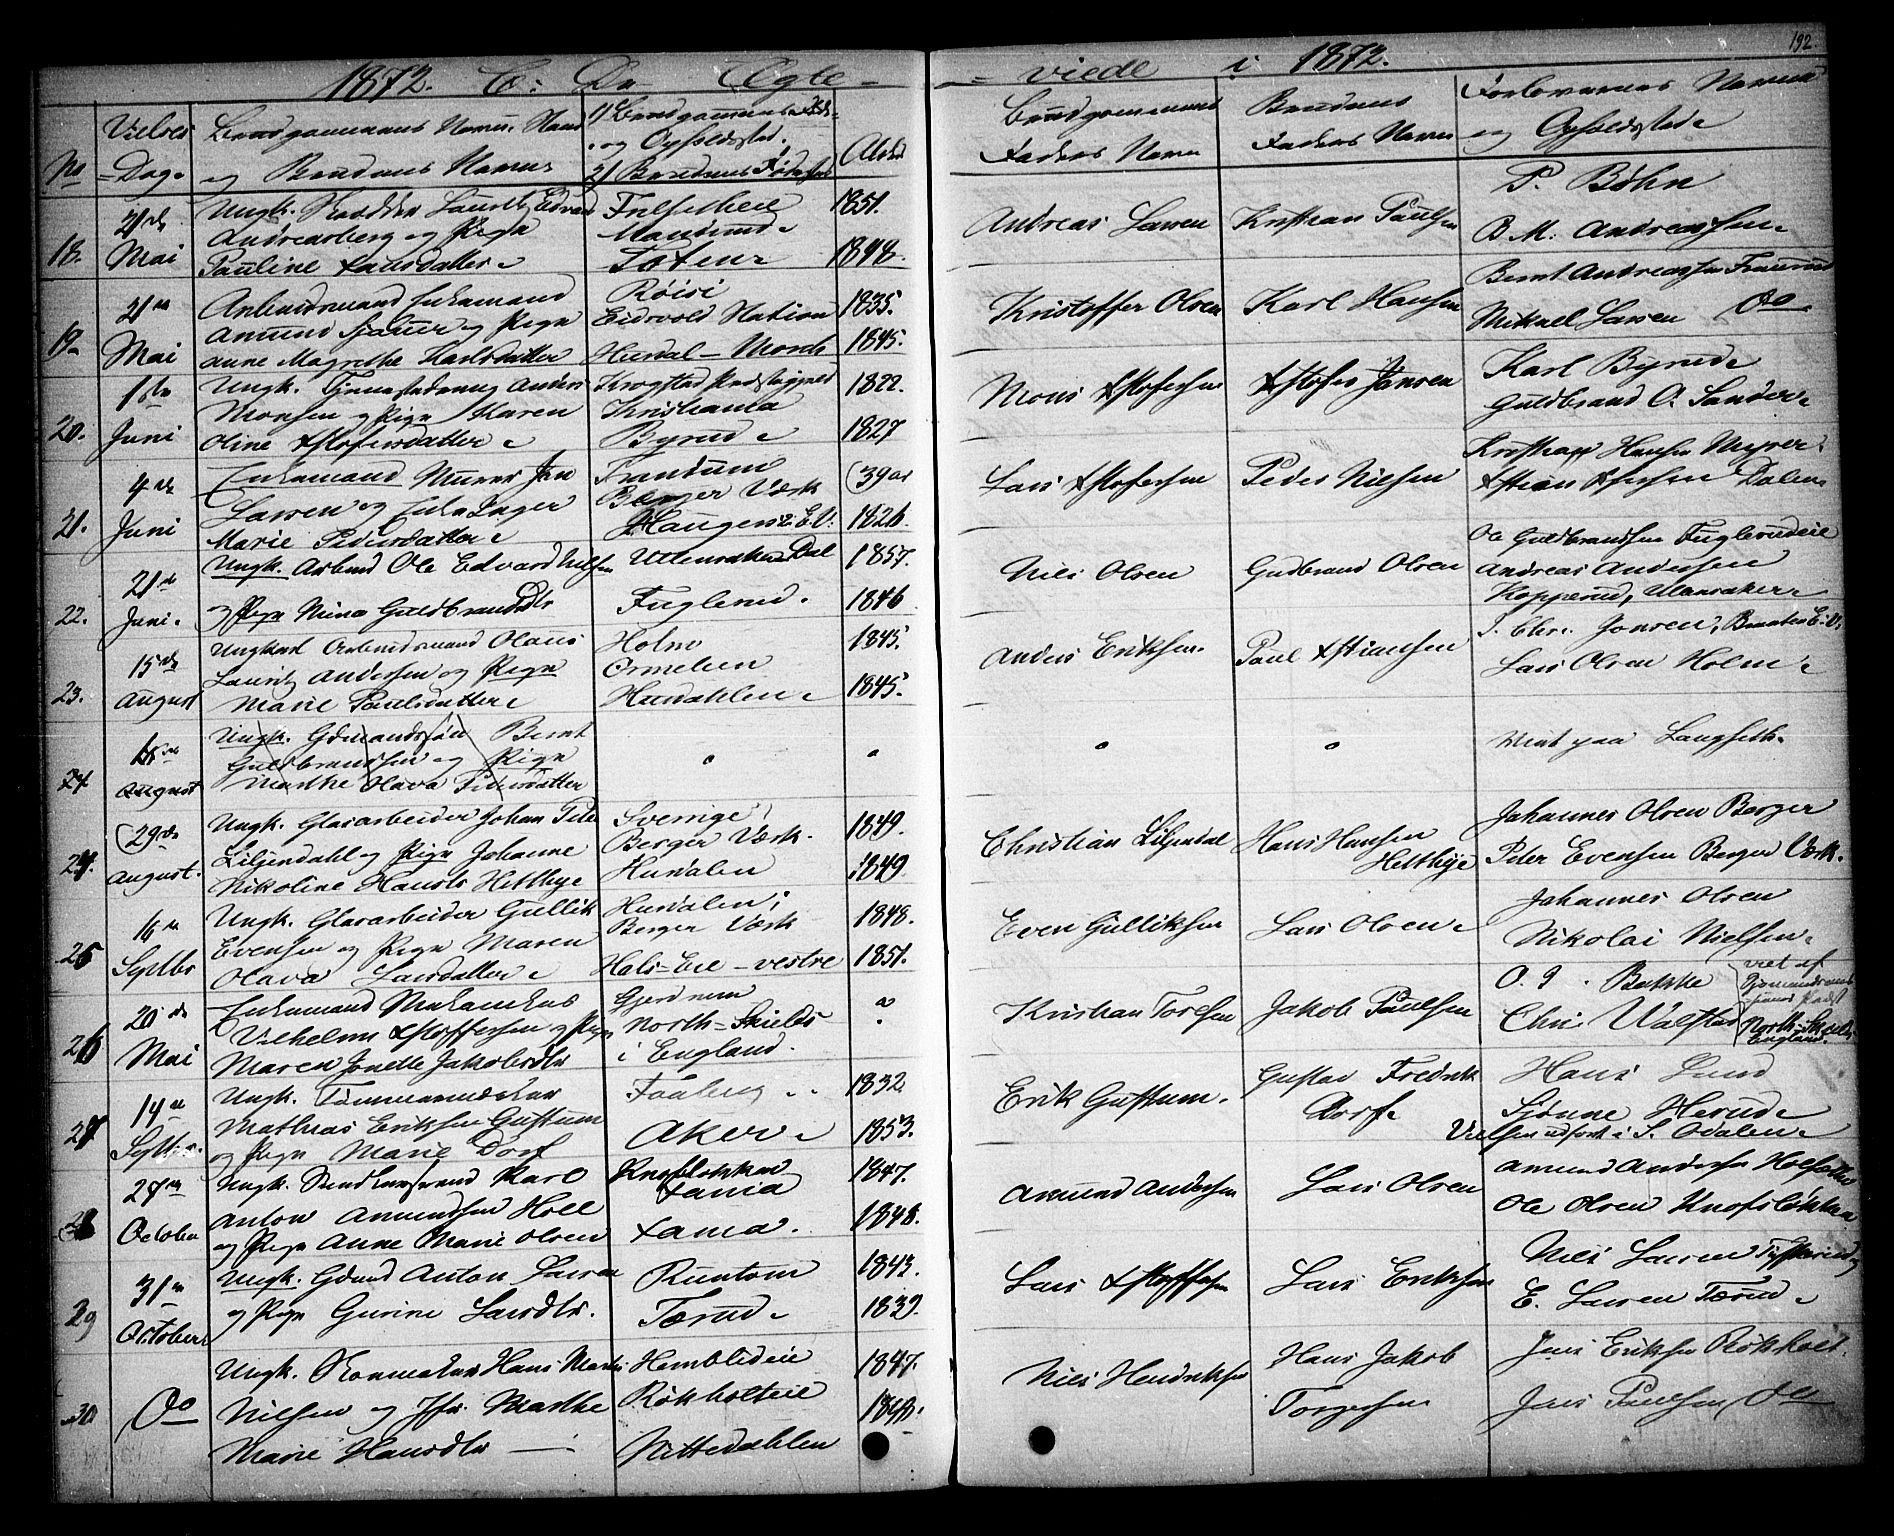 192
1872. C: De Ægte-
-viede i 1872.
No
Vielses
Dag.
Brudgommens Navn, Stand
og Brudens Navn
1) Brudgommens Føde-
og Opholdssted.
2) Brudens Fødested
Alder
Brudgommens
Faders Navn
Brudens
Faders Navn
Forlovernes Navne
og Opholdssted
18.
21de
Mai
Ungk. Skrædder Laurits Edvard
Andreasberg og Pige
Pauline Larsdatter
Mausund
Toten
1851.
1848.
Andreas Larsen
Kristian Paulsen
P. Bøhn
B. M. Andreassen
19
21de
Mai
Arbeidsmand Enkemand
Amund og Pige
Anne Magrethe Karlsdatter
Røisi
Eidsvold Station
Hurdal - Morth
1835.
1845.
Kristoffer Olsen
Karl Hansen
Bernt Andreassen
Mikael Larsen Do
20.
1ste
Juni
Ungk. Anders
Monsen og Pige Karen
Oline Xstofersdatter
Krogstad Præstegjeld
Kristiania
Byrud
1822.
1827
Mons Xstofersen
Xstofer Jansen
Karl Byrud
Guldbrand O. Sander
21.
4de
Juni
Enkemand Murer Jan
Larsen og Enke Inger
Marie Pedersdatter
Trandum
Berger Værk
Haugen i E. V.
(39 ar
1826.
Lars Xstofersen
Peder Nielsen
Kristian Hansen Myrer
Xstian Dalen
22.
21de
Juni
Ungk. Arbeid Ole Edvard Nilsen
og Pige Mina Guldbrandsdtr
Ullensaker Dal
Fuglerud.
1857.
1846
Niels Olsen
Gudbrand Olsen
Ole Guldbrandsen Fuglerudeie
Andreas Andersen
Kopperud, Ulensaker
23.
15de
August
Ungkarl Arbeidsmand Olaus
Laurits Andersen og Pige
Marie Paulsdatter
Holm
Ormelien
Hurdahlen
1845.
1845.
Anders Eriksen.
Paul Xstiansen
S. Chr. Jonsen, Braaten E. V.
Lars Olsen Holm
24
18de
August
Ungk. Gdmandssøn Bernt
Guldbrandsen og Pige
Marthe Olava Pedersdatter
Viet paa Langseth.
24.
(29de
August.
Ungk. Glasarbeider Johan Peter
Liljendahl og Pige Johanne
Nikoline Hansdtr Hetthye
Sverrige
Berger Værk.
Hurdalen
1849.
1849
Christian Liljendal
Hans Hansen
Hetthye
Johannes Olsen Berger
Peter Evensen Berger Værk.
25
16de
Septbr
Ungk. Glasarbeider Gullik
Evensen og Pige Maren
Olava Larsdatter
Hurdalen
Berger Værk
Hals-Eie-vestre
1848.
1851.
Even Gulliksen
Lars Olsen
Johannes Olsen
Nikolai Nielsen
26
20de
Mai
Enkemand Mekanikus
Vilhelm Xstoffersen og Pige
Maren Jonette Jakobsdtr
Gjerdrum
North-Shields
i England.
Kristian Toresen
Jakob Paulsen
O. J. Bakke
Chr. Walstad
viet af
Sjømandsmissionens Præst
North-Shields
England.
27
14de
Septbr
Ungk. Tømmermester
Mathias Eriksen Gustum
og Pige Marie Dorf
Faaberg
Aker
1832
1853.
Erik Gustum.
Gustav Fredrik
Dorf
Hans Lund
Sjønne Herud
Vielsen udført i S. Odalen
28
27de
October
Ungk. Karl
Anton Amundsen Holl
og Pige Anne Marie Olsen
Knofsløkken
Xania
Xania.
1847.
1848.
Amund Andersen
Lars Olsen
Amund Andersen
Ole Olsen Knofsløkken
29
31te
October
Ungk. Gdmd Anton Larsen
og Pige Gurine Larsdtr.
Runtom
Tærud
1843.
1839.
Lars Xstoffersen
Lars Eriksen
Niels Larsen
E. Larsen Tærud
30
Do
Ungk. Skomaker Hans Martin
Nilsen og Jfr. Marthe
Marie Hansdtr
Hemblideie
Røkholteie
Nittedahlen
1847.
Niels Hendriksen
Hans Jakob
Torgersen
Jens Eriksen Røkholt
Jens Paulsen Do